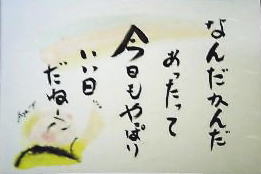 なんだかんだ
あったって
今日もやっぱり
いい日
だねー